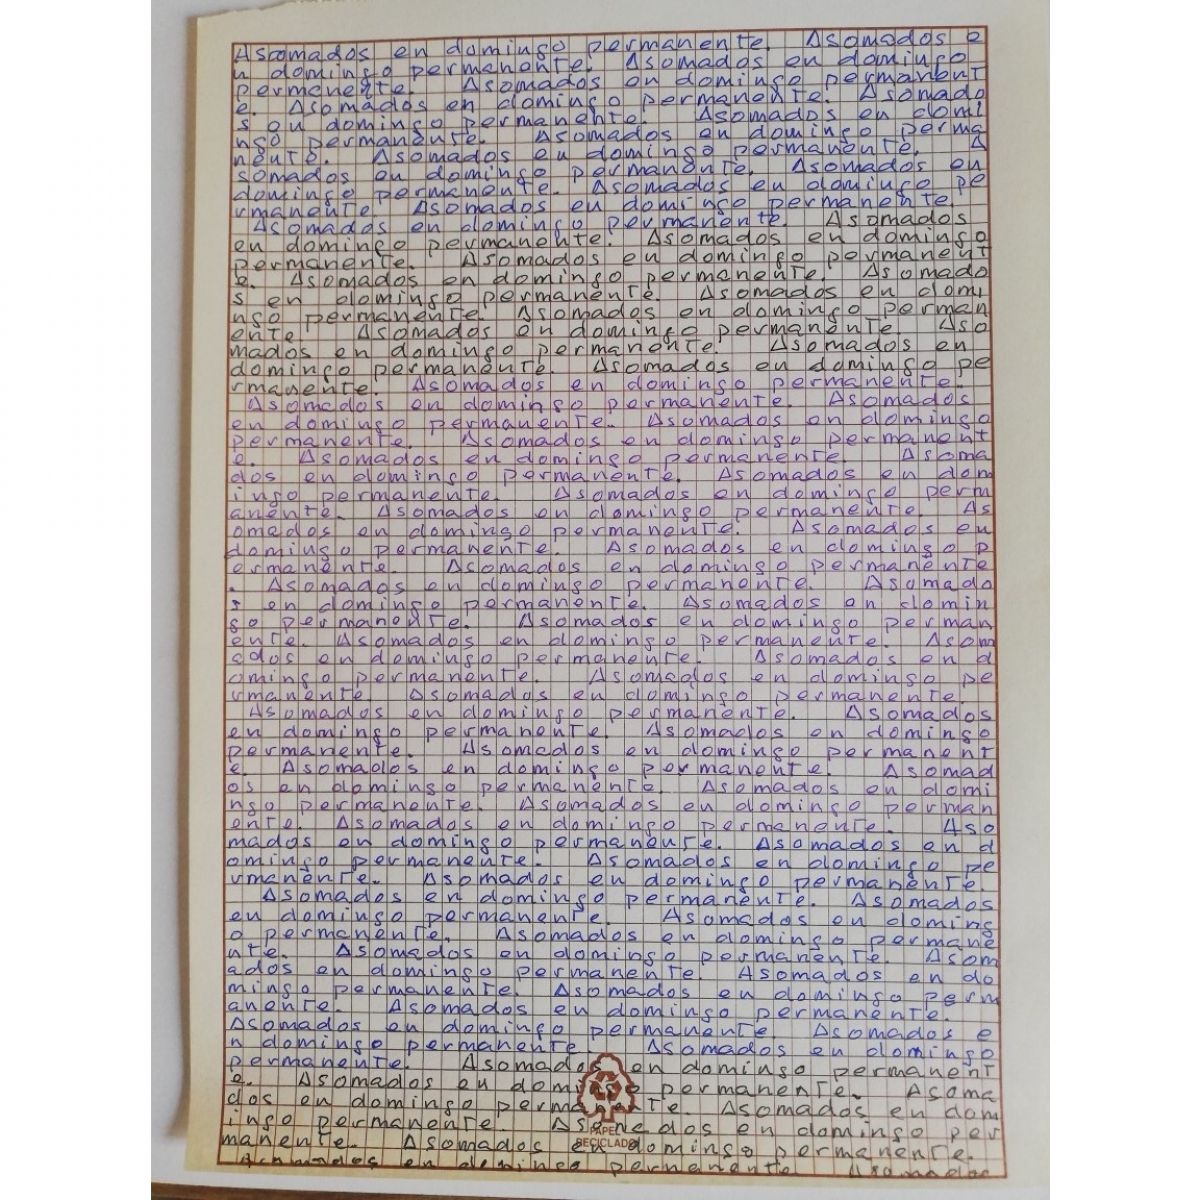 Asomados en domingo permanente. Asomados e
n domingo permanente. Asomados en domingo
permanente. Asomados en domingo permanent
e. Asomados en domingo permanente. Asomado
s en domingo permanente. Asomados en domi
ngo permanente. Asomados en domingo perma
nente. Asomados en domingo permanente. A
somados en domingo permanente. Asomados en
domingo permanente. Asomados en domingo pe
rmanente. Asomados en domingo permanente.
Asomados en domingo permanente. Asomados
en domingo permanente. Asomados en domingo
permanente. Asomados en domingo permanent
e. Asomados en domingo permanente. Asomado
s en domingo permanente. Asomados en domi
ngo permanente. Asomados en domingo perman
ente. Asomados en domingo permanente. Aso
mados en domingo permanente. Asomados en
domingo permanente. Asomados en domingo pe
rmanente. Asomados en domingo permanente.
Asomados en domingo permanente. Asomados
en domingo permanente. Asomados en domingo
permanente. Asomados en domingo permanent
e. Asomados en domingo permanente. Asoma
dos en domingo permanente. Asomados en dom
ingo permanente. Asomados en domingo perm
anente. Asomados en domingo permanente. As
omados en domingo permanente. Asomados en
domingo permanente. Asomados en domingo p
ermanente. Asomados en domingo permanente
. Asomados en domingo permanente. Asomado
s en domingo permanente. Asomados en domin
go permanente. Asomados en domingo perman
ente. Asomados en domingo permanente. Asom
ados en domingo permanente. Asomados en d
omingo permanente. Asomados en domingo pe
rmanente. Asomados en domingo permanente.
Asomados en domingo permanente. Asomados
en domingo permanente. Asomados en domingo
permanente. Asomados en domingo permanent
e. Asomados en domingo permanente. Asomad
os en domingo permanente. Asomados en domi
ngo permanente. Asomados en domingo perman
ente. Asomados en domingo permanente. Aso
mados en domingo permanente. Asomados en d
omingo permanente. Asomados en domingo pe
rmanente. Asomados en domingo permanente.
Asomados en domingo permanente. Asomados
en domingo permanente. Asomados en doming
o permanente. Asomados en domingo permane
nte. Asomados en domingo permanente. Asom
ados en domingo permanente. Asomados en do
mingo permanente. Asomados en domingo perm
anente. Asomados en domingo permanente.
Asomados en domingo permanente Asomados e
n domingo permanente Asomados en domingo
permanente. Asomados en domingo permanent
e. Asomados en domingo permanente. Asoma
dos en domingo permanente. Asomados en dom
ingo permanente. Asomados en domingo per
manente. Asomados en domingo permanente.
Asomados en domingo permanente Asomados
PAPEL
RECICLADO